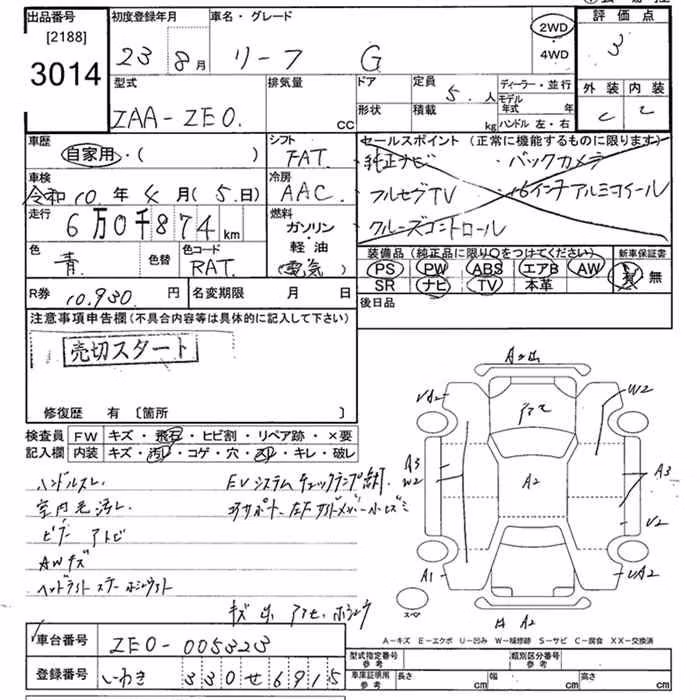 出品番号
[2188]
3014
初度登録年月
23 8月
車名・グレード
リーフ G
2WD
・
4WD
評価点
3
外装 内装
C C
型式
ZAA-ZE0.
排気量
CC
ドア
形状
定員
5.人
積載
kg
ディーラー・並行
モデル年式 年
ハンドル 左・右
車歴
自家用・( )
車検
令和10年4月(5日)
走行
6万0千874km
色
青.
色替
色コード
RAT.
シフト
FAT.
冷房
AAC.
燃料
ガソリン
軽油
(電気)
セールスポイント (正常に機能するものに限ります)
・純正ナビ ・バックカメラ
・フルセグTV ・16インチアルミホイール
・クルーズコントロール
装備品(純正品に限り〇をつけてください)
PS PW ABS エアB AW
SR ナビ TV 本革
新車保証書
有 無
後日品
R券 10,930. 円
名変期限 月 日
注意事項申告欄(不具合内容等は具体的に記入して下さい)
売切スタート
修復歴 有 〔箇所 〕
検査員 FW キズ・飛石・ヒビ割・リペア跡・×要
記入欄 内装 キズ・汚れ・コゲ・穴・スレ・キレ・破レ
ハンドルスレ
室内毛汚レ
ビナーアトビ
AWキズ
EVシステムチェックランプ点灯.
コアサポート
A1
A2
A3
W2
U2
スペア
車台番号 ZE0-005323
登録番号 いわき 330せ6915
A-キズ E-エクボ U-凹み W-補修跡 S-サビ C-腐食 XX-交換済
型式指定番号 参考
類別区分番号 参考
車庫証明用 参考
長さ cm 幅 cm 高さ cm